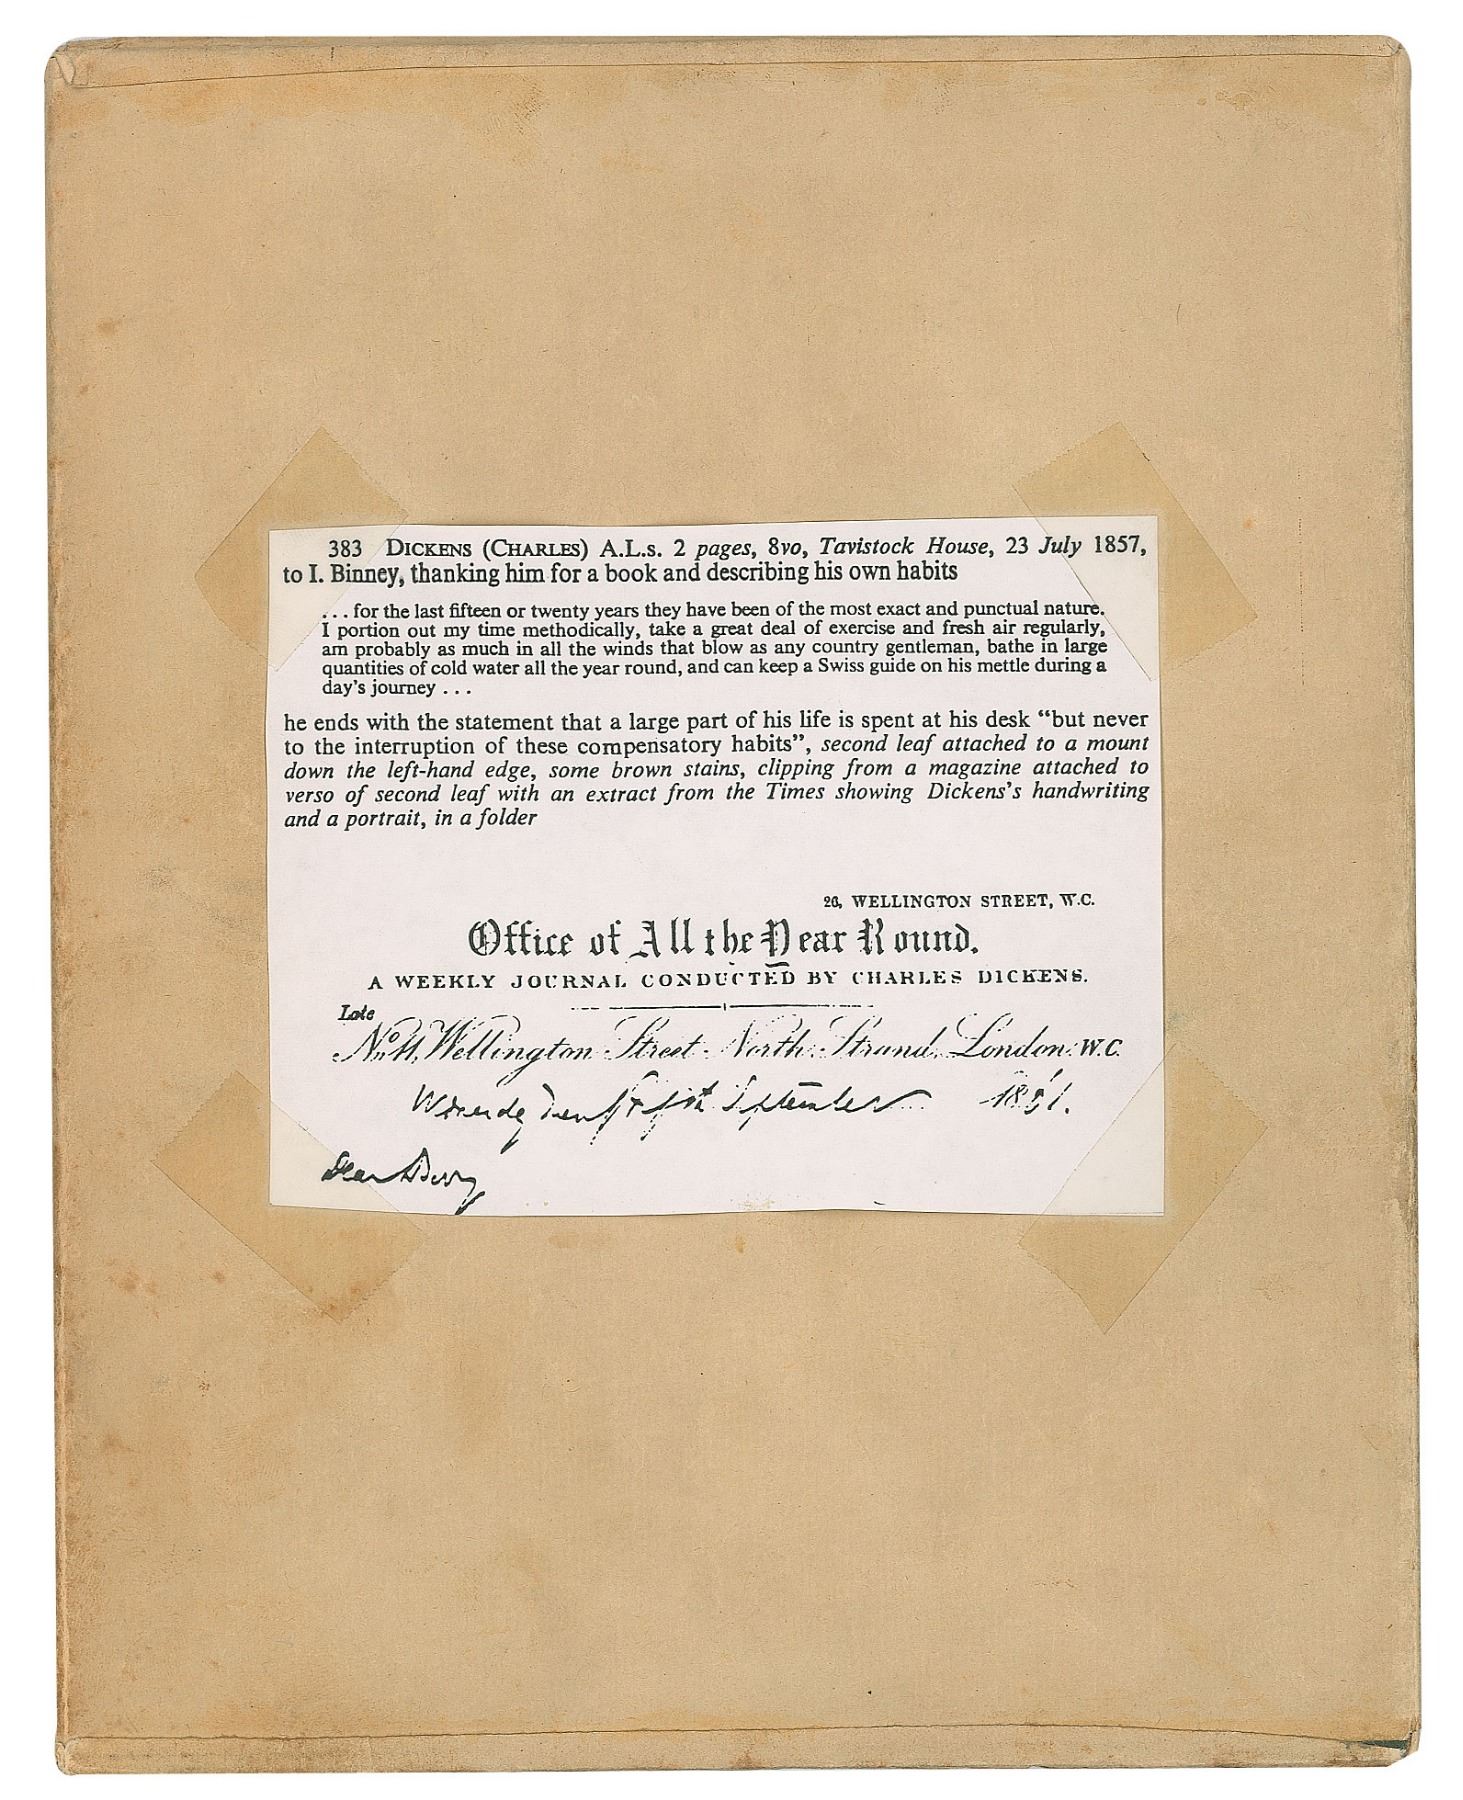 383 DICKENS (CHARLES) A.L.s. 2 pages, 8vo, Tavistock House, 23 July 1857,
to I. Binney, thanking him for a book and describing his own habits
. . . for the last fifteen or twenty years they have been of the most exact and punctual nature.
I portion out my time methodically, take a great deal of exercise and fresh air regularly,
am probably as much in all the winds that blow as any country gentleman, bathe in large
quantities of cold water all the year round, and can keep a Swiss guide on his mettle during a
day's journey . . .
he ends with the statement that a large part of his life is spent at his desk “but never
to the interruption of these compensatory habits”, second leaf attached to a mount
down the left-hand edge, some brown stains, clipping from a magazine attached to
verso of second leaf with an extract from the Times showing Dickens's handwriting
and a portrait, in a folder
26, WELLINGTON STREET, W.C.
Office of All the Year Round.
A WEEKLY JOURNAL CONDUCTED BY CHARLES DICKENS.
Late
No. 11, Wellington Street North, Strand, London. W.C.
September
Dear